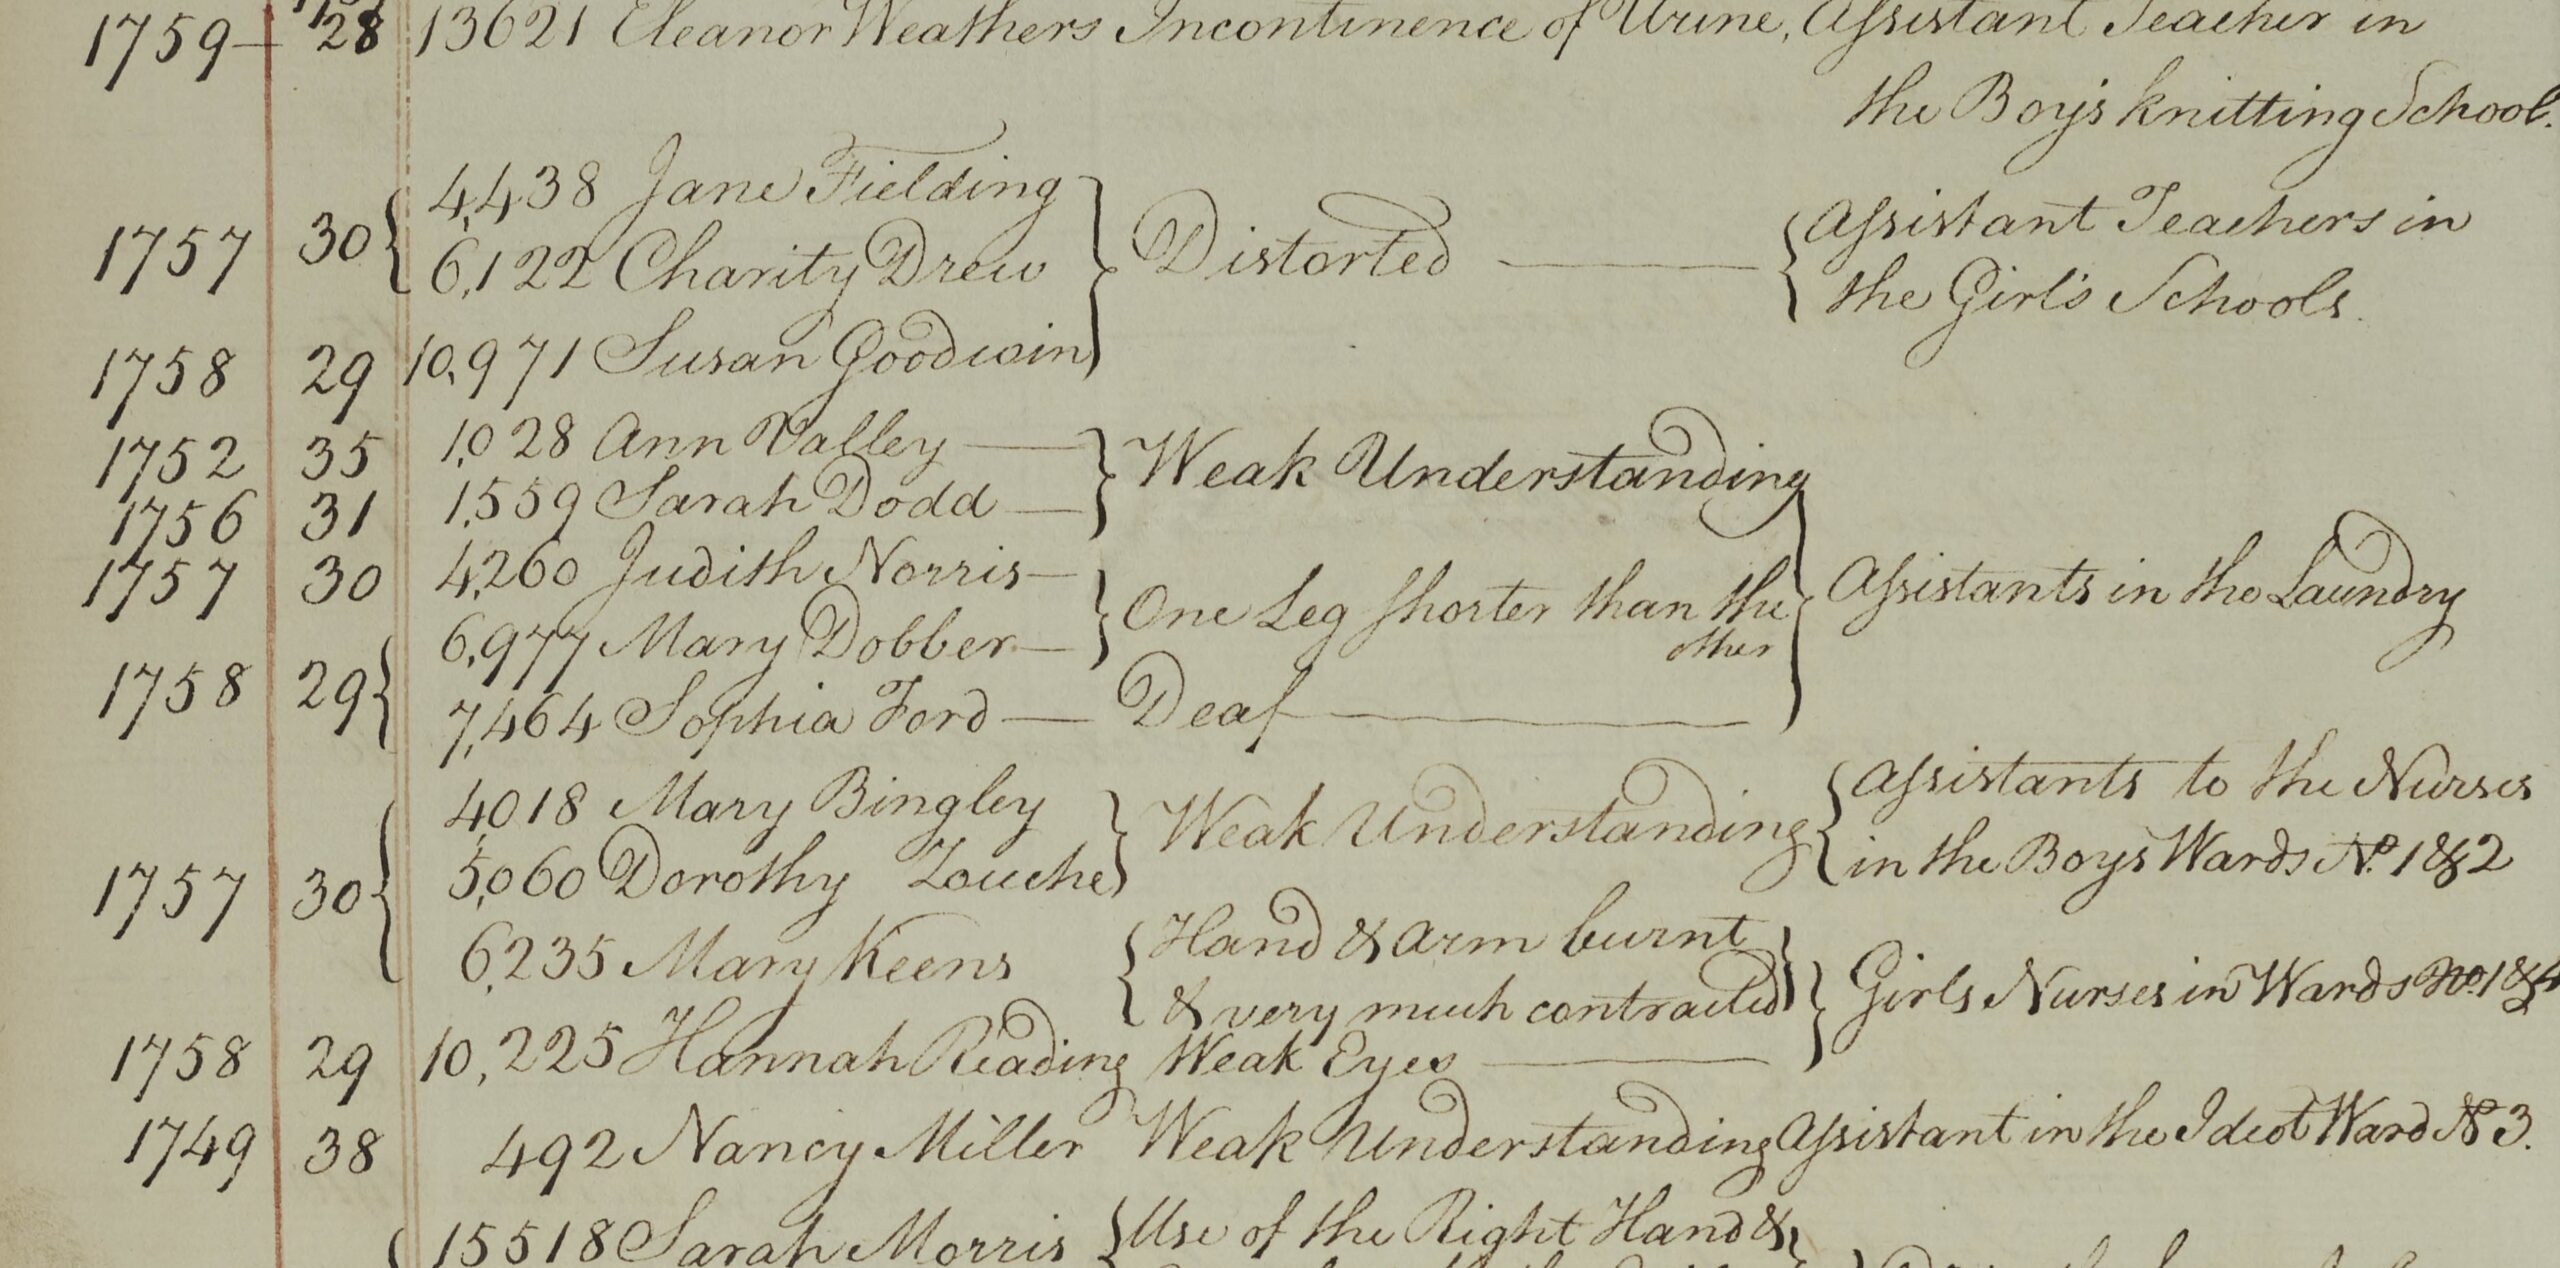 1759 — 28 13621 Eleanor Weathers Incontinence of Urine, Assistant Teacher in
the Boy's knitting School.
4,438 Jane Fielding
1757 30 6,122 Charity Drew Distorted — Assistant Teachers in
the Girl's Schools.
1758 29 10,971 Susan Goodwin
1752 35 1,028 Ann Valley — Weak Understanding
1756 31 1,559 Sarah Dodd —
1757 30 4,260 Judith Norris — One Leg shorter than the Assistants in the Laundry
other
6,977 Mary Dobber —
1758 29
7,464 Sophia Ford — Deaf —
4,018 Mary Bingley Weak Understanding Assistants to the Nurses
in the Boys Wards No. 1 & 2
1757 30 5,060 Dorothy Zouche
6,235 Mary Keens Hand & Arm burnt
& very much contracted Girls Nurses in Wards No. 1 & 4
1758 29 10,225 Hannah Reading Weak Eyes —
1749 38 492 Nancy Miller Weak Understanding Assistant in the Ideot Ward No 3.
15518 Sarah Morris Use of the Right Hand &